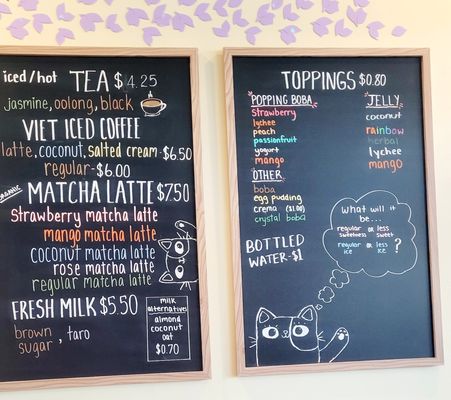 iced/hot TEA $4.25
jasmine, oolong, black
VIET ICED COFFEE
latte, coconut, salted cream - $6.50
regular - $6.00
organic MATCHA LATTE $7.50
Strawberry matcha latte
mango matcha latte
coconut matcha latte
rose matcha latte
regular matcha latte
FRESH MILK $5.50
brown sugar, taro
milk
alternatives
almond
coconut
oat
$0.70
TOPPINGS $0.80
POPPING BOBA
Strawberry
lychee
peach
passionfruit
yogurt
mango
OTHER
boba
egg pudding
crema ($1.00)
crystal boba
BOTTLED
WATER - $1
JELLY
coconut
rainbow
herbal
lychee
mango
What will it
be...
regular or less
sweetness sweet
regular or less ?
ice ice